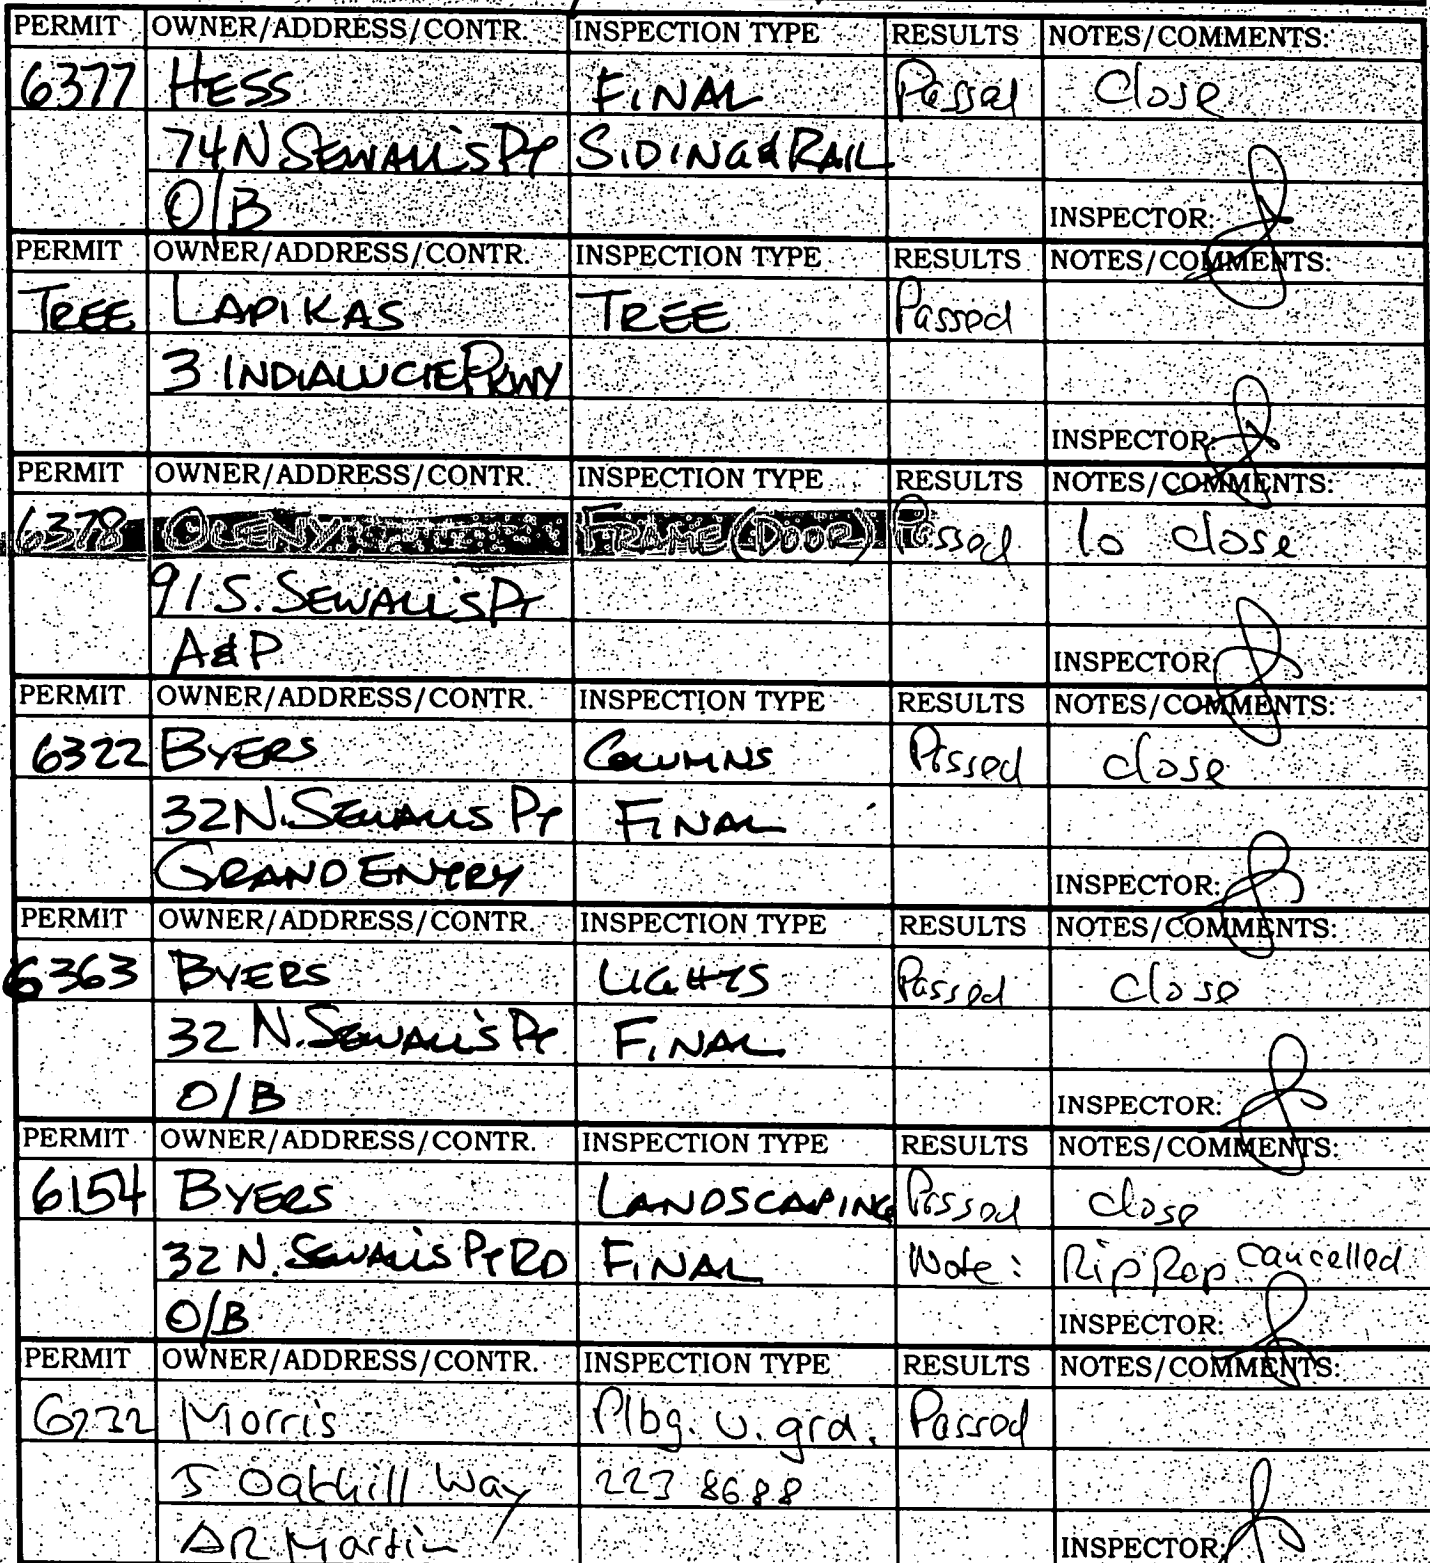 PERMIT OWNER/ADDRESS/CONTR. INSPECTION TYPE RESULTS NOTES/COMMENTS:
6377 HESS FINAL Passed Close
74 N SEWALL'S PT SIDING & RAIL
O/B INSPECTOR:
PERMIT OWNER/ADDRESS/CONTR. INSPECTION TYPE RESULTS NOTES/COMMENTS:
TREE LAPIKAS TREE Passed
3 INDIALUCIE PKWY
INSPECTOR:
PERMIT OWNER/ADDRESS/CONTR. INSPECTION TYPE RESULTS NOTES/COMMENTS:
6378 OLENY FRAME (DOOR) Passed to close
91 S. SEWALL'S PT
A&P INSPECTOR:
PERMIT OWNER/ADDRESS/CONTR. INSPECTION TYPE RESULTS NOTES/COMMENTS:
6322 BYERS COLUMNS Passed close
32 N. SEWALLS PT FINAL
GRAND ENTRY INSPECTOR:
PERMIT OWNER/ADDRESS/CONTR. INSPECTION TYPE RESULTS NOTES/COMMENTS:
6363 BYERS LIGHTS Passed close
32 N. SEWALL'S PT FINAL
O/B INSPECTOR:
PERMIT OWNER/ADDRESS/CONTR. INSPECTION TYPE RESULTS NOTES/COMMENTS:
6154 BYERS LANDSCAPING Passed close
32 N. SEWALL'S PT RD FINAL Note: Rip Rap cancelled
O/B INSPECTOR:
PERMIT OWNER/ADDRESS/CONTR. INSPECTION TYPE RESULTS NOTES/COMMENTS:
6232 Morris Plbg. U. grd. Passed
5 Oakhill Way 223 8688
AR Martin INSPECTOR: